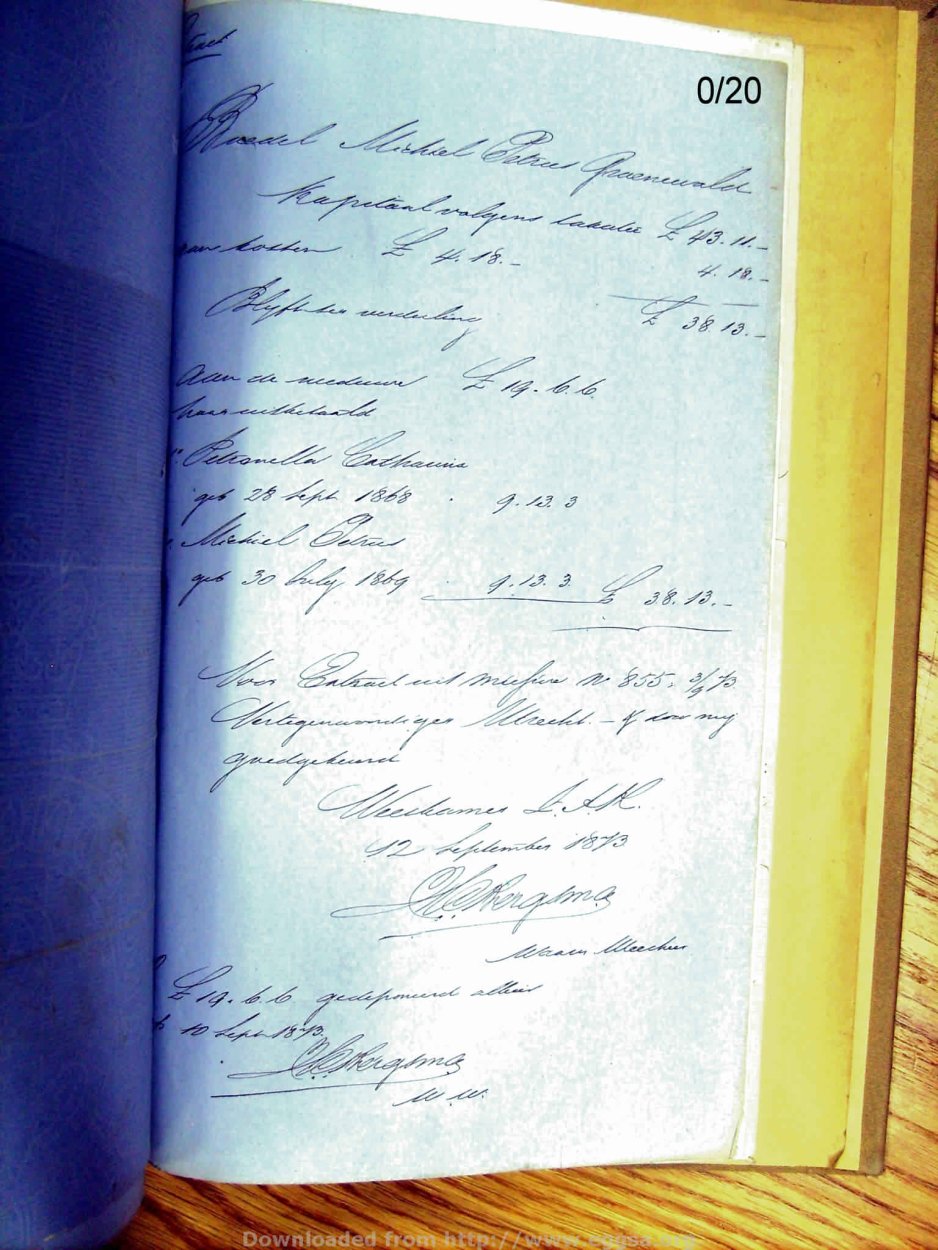 0/20
Boedel Michiel Petrus Groenewald
Kapitaal volgens £ 43.11.-
aan kosten £ 4.18.- 4.18.-
Blyft ter verdeeling £ 38.13.-
Aan de weduwe £ 19.6.6.
haar uitbetaald
Petronella Catharina
geb 28 Sept 1868 . 9.13.3
Michiel Petrus
geb 30 July 1869 . 9.13.3 £ 38.13.-
Voor Extract uit missive No 855, 3/9/73
Vertegenwoordiger Utrecht. - & door my
goedgekeurd
Weeskamer Z.A.R.
12 September 1873
Bergsma
Waarn Weeshr
£ 19.6.6 gedeponeerd alhier
10 Sept 1873.
Bergsma
W.W.
Downloaded from http://www.eggsa.org